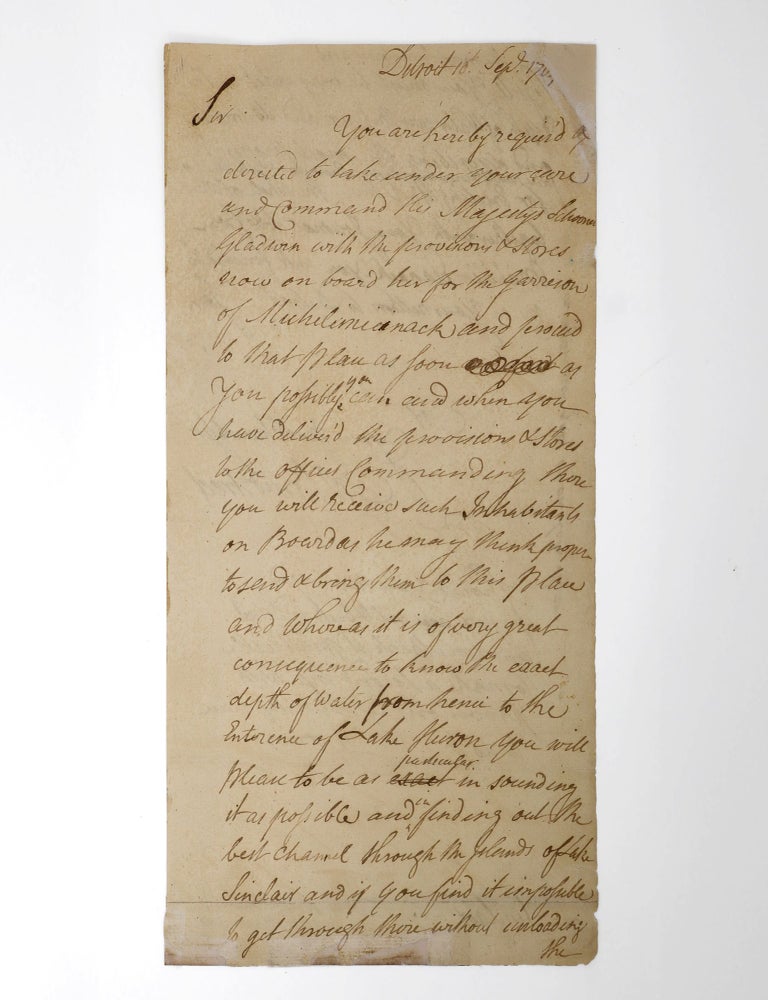 Detroit Sepr. 17
Sir
You are hereby requir'd &
directed to take under your care
and Command His Majestys Schooner
Gladwin with the provisions & stores
now on board her for the Garrison
of Michilimicinack and proceed
to that place as soon as
You possibly you can and when you
have deliver'd the provisions & Stores
to the officer Commanding there
you will receive such Inhabitants
on Board as he may think proper
to send & bring them to this place
and whereas it is of very great
consequence to know the exact
depth of water from hence to the
Enterence of Lake Huron you will
please to be as exact particular in sounding
it as possible and in finding out the
best chanel through the Islands of Lake
Sinclair and if you find it impossible
to get through there without unloading
the